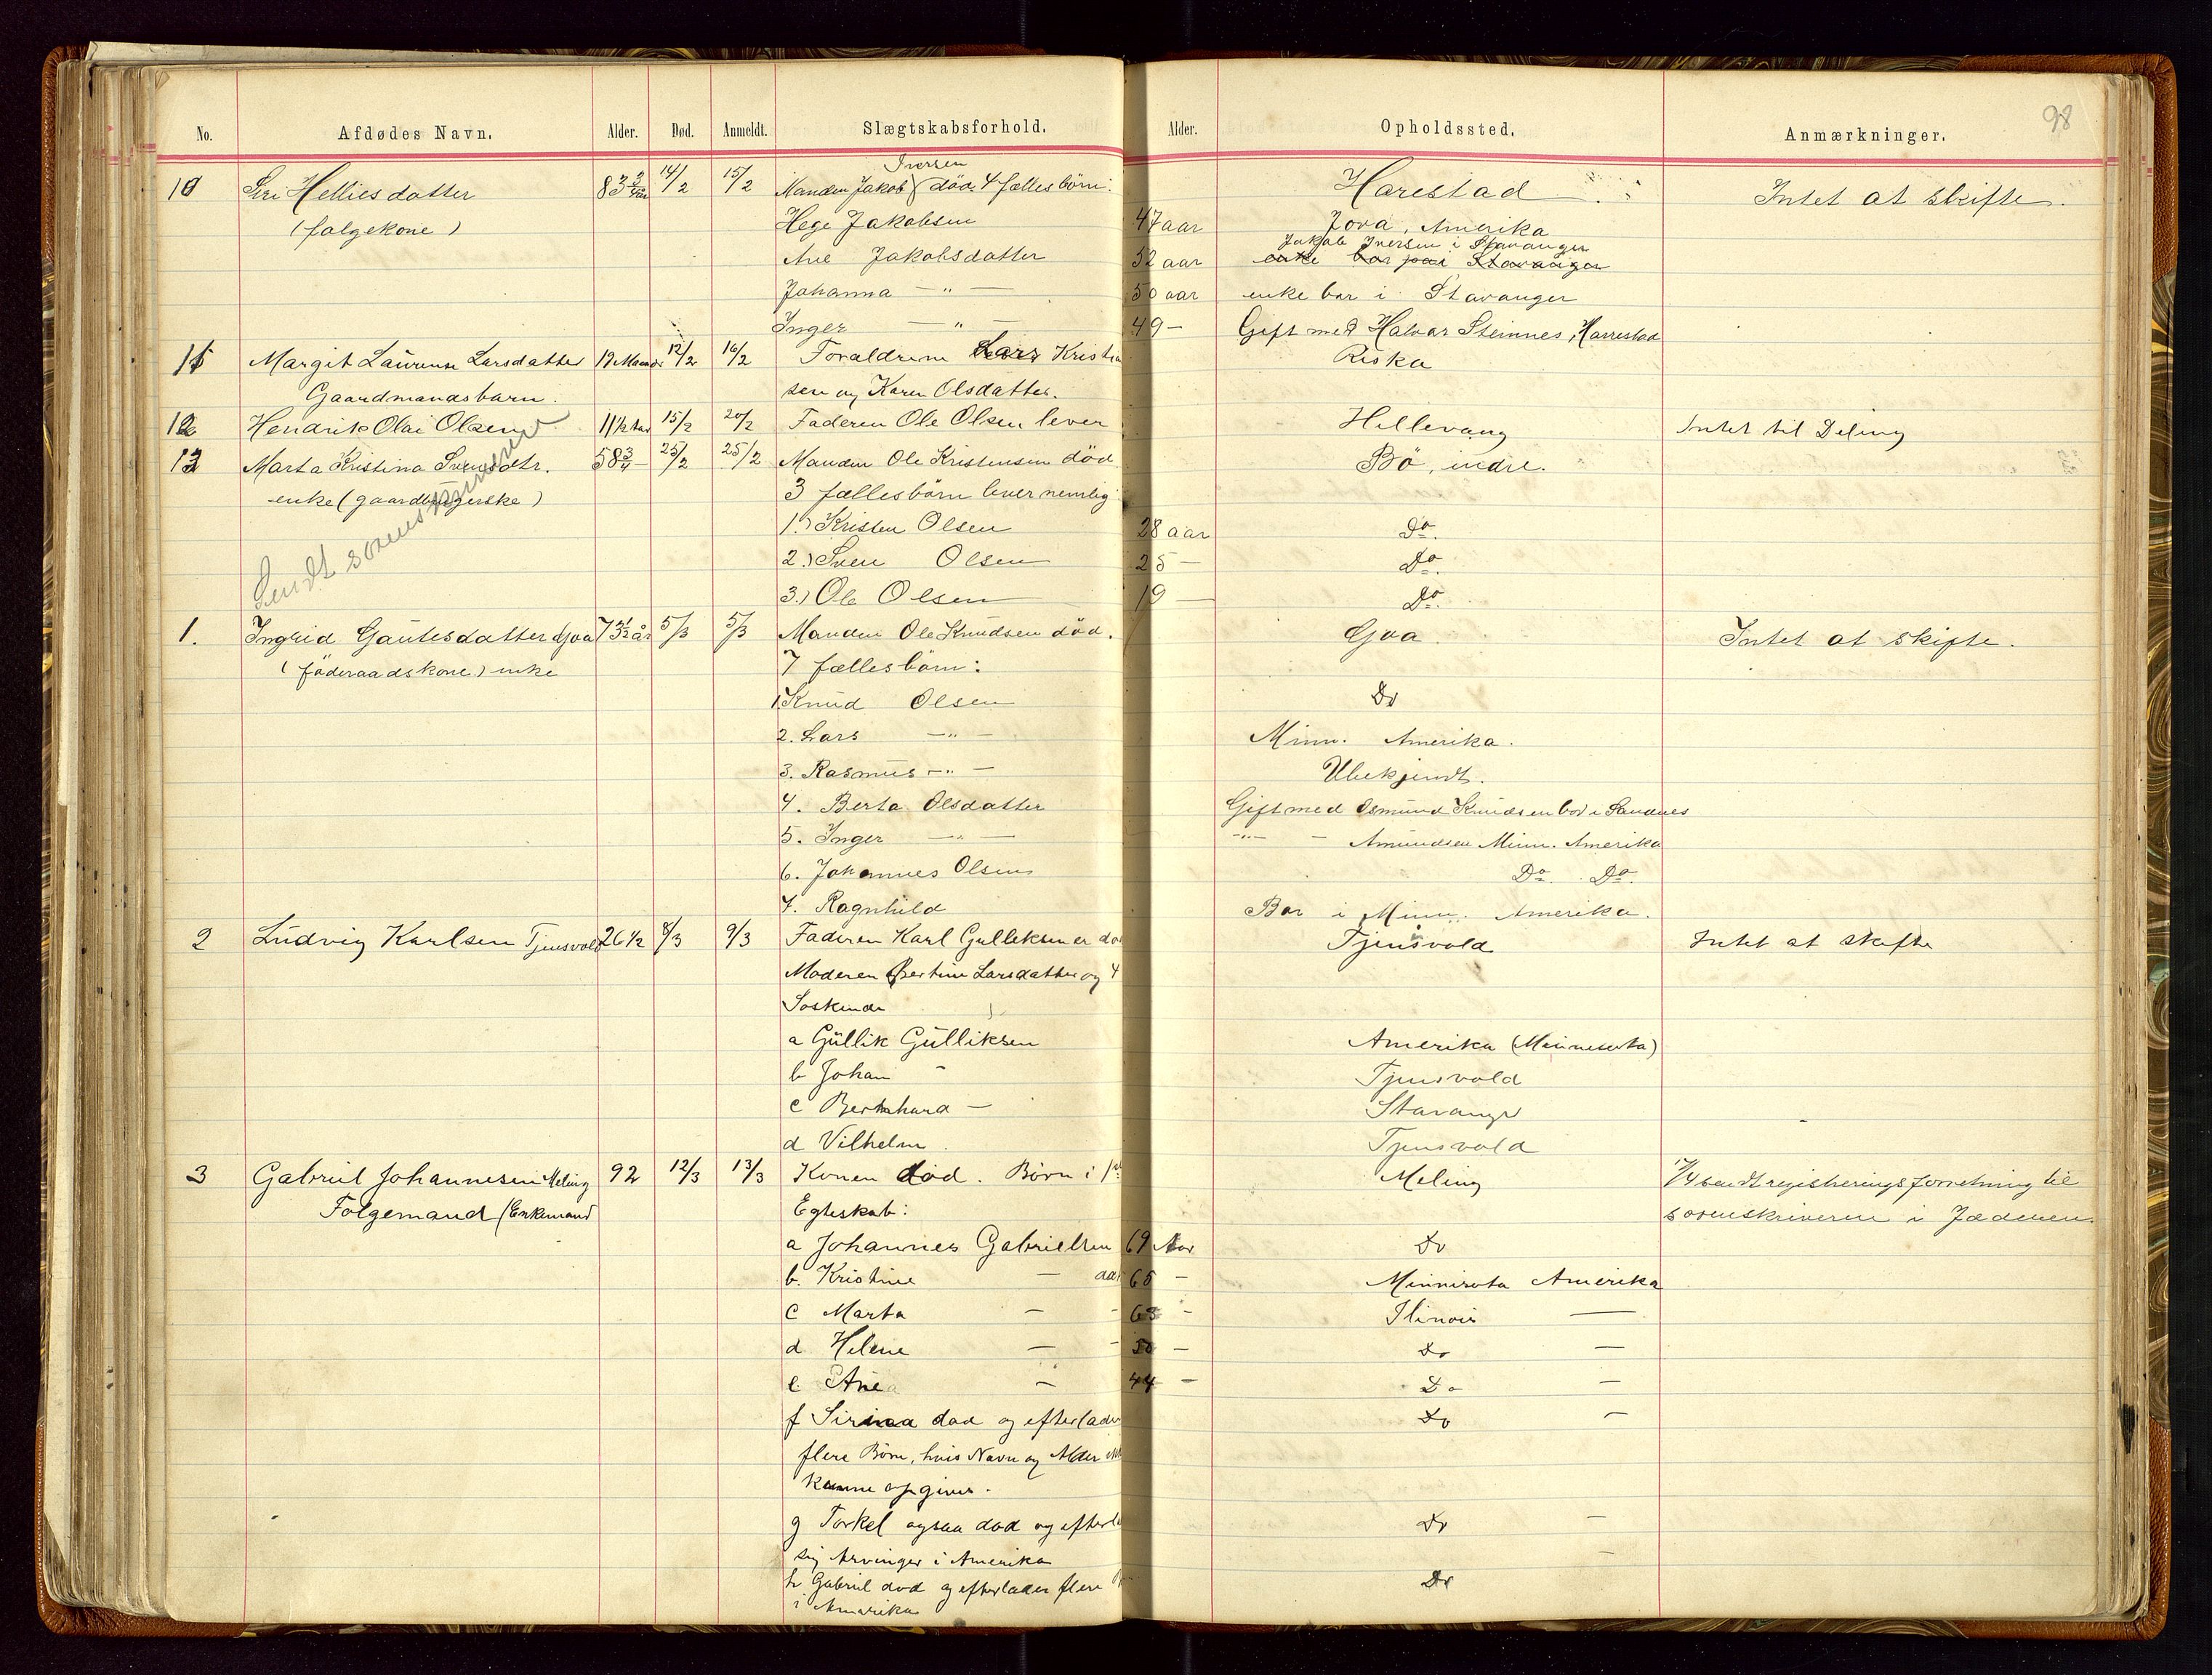 98
No. Afdødes Navn. Alder. Død. Anmeldt. Slægtskabsforhold. Alder. Opholdssted. Anmærkninger.
10 Siri Helliesdatter 83 3/4 14/2 15/2 Manden Jakob Iversen död 4 fællesbörn: Harestad Intet at skifte.
(følgekone) Hege Jakobsen 47 aar Jova, Amerika
Ane Jakobsdatter 52 aar Jakob Iversen i Stavanger
Johanna — " — 50 aar enke bor i Stavanger
Inger — " — 49 — Gift med Halvar Steinnes, Harrestad
11 Margit Laurense Larsdatter 19 Maaneder 12/2 16/2 Foraldrene Lars Kristia Riska
Gaardmandsbarn. sen og Karen Olsdatter.
12 Hendrik Olai Olsen 11 1/2 Aar 15/2 20/2 Faderen Ole Olsen lever Hellevang Intet til Deling
13 Marta Kristina Svensdtr. 58 3/4 — 25/2 25/2 Manden Ole Kristensen död Bö, indre.
enke (gaardbrugerske) 3 fællesbörn lever nemlig
1.) Kristen Olsen 28 aar Do.
2.) Sven Olsen 25 — Do.
3.) Ole Olsen 19 — Do.
Sendt sorenskriveren
1. Ingrid Gautesdatter Goa 73 1/2 år 5/3 5/3 Manden Ole Knudsen död. Goa Intet at skifte.
(föderaadskone) enke 7 fællesbörn:
1. Knud Olsen Do
2. Lars — " — Minn. Amerika.
3. Rasmus — " — Ubekjendt.
4. Berta Olsdatter Gift med Osmund Knudsen bor i Sandnes
5. Inger — " — — " — — Amundsen Minn. Amerika
6. Johannes Olsen Do. Do.
7. Ragnhild Bor i Minn. Amerika.
2 Ludvig Karlsen Tjensvold 26 1/2 8/3 9/3 Faderen Karl Gulleksen er dø Tjensvold Intet at skifte
Moderen Bertine Larsdatter og 4
Söskende
a Gullik Gulliksen Amerika (Minnesota)
b Johan " Tjensvold
c Bernhard — Stavanger
d Vilhelm Tjensvold
3 Gabriel Johannesen Meling 92 12/3 13/3 Konen död. Børn i 1ste Meling 17/4 sendt registreringsforretning til
Folgemand (Enkemand Egteskab: sorenskriveren i Jæderen.
a Johannes Gabrielsen 69 Aar Do
b. Kristine — dat 65 — Minnisota Amerika
c Marta — 63 — Ilinois —
d Helene — 50 — Do —
e Ane — 44 — Do —
f Sirina død og efterlader Do —
flere Børn, hvis Navn og Alder ikke
kunne opgives.
g Torkel ogsaa død og efterla Do —
sig Arvinger i Amerika
h Gabriel død og efterlader flere Do
i Amerika